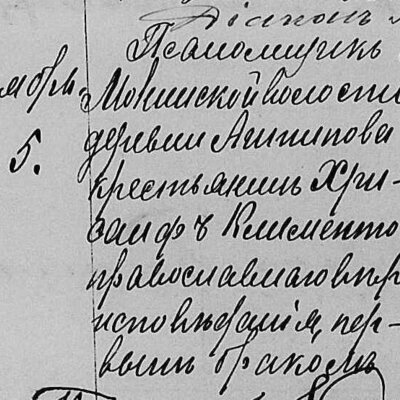 Діаконъ
Псаломщикъ
ябрь. Монинской волости
5. деревни Антипова
крестьянинъ Хри-
санфъ Клименто
православнаго вѣр
исповѣданія, пер-
вымъ бракомъ